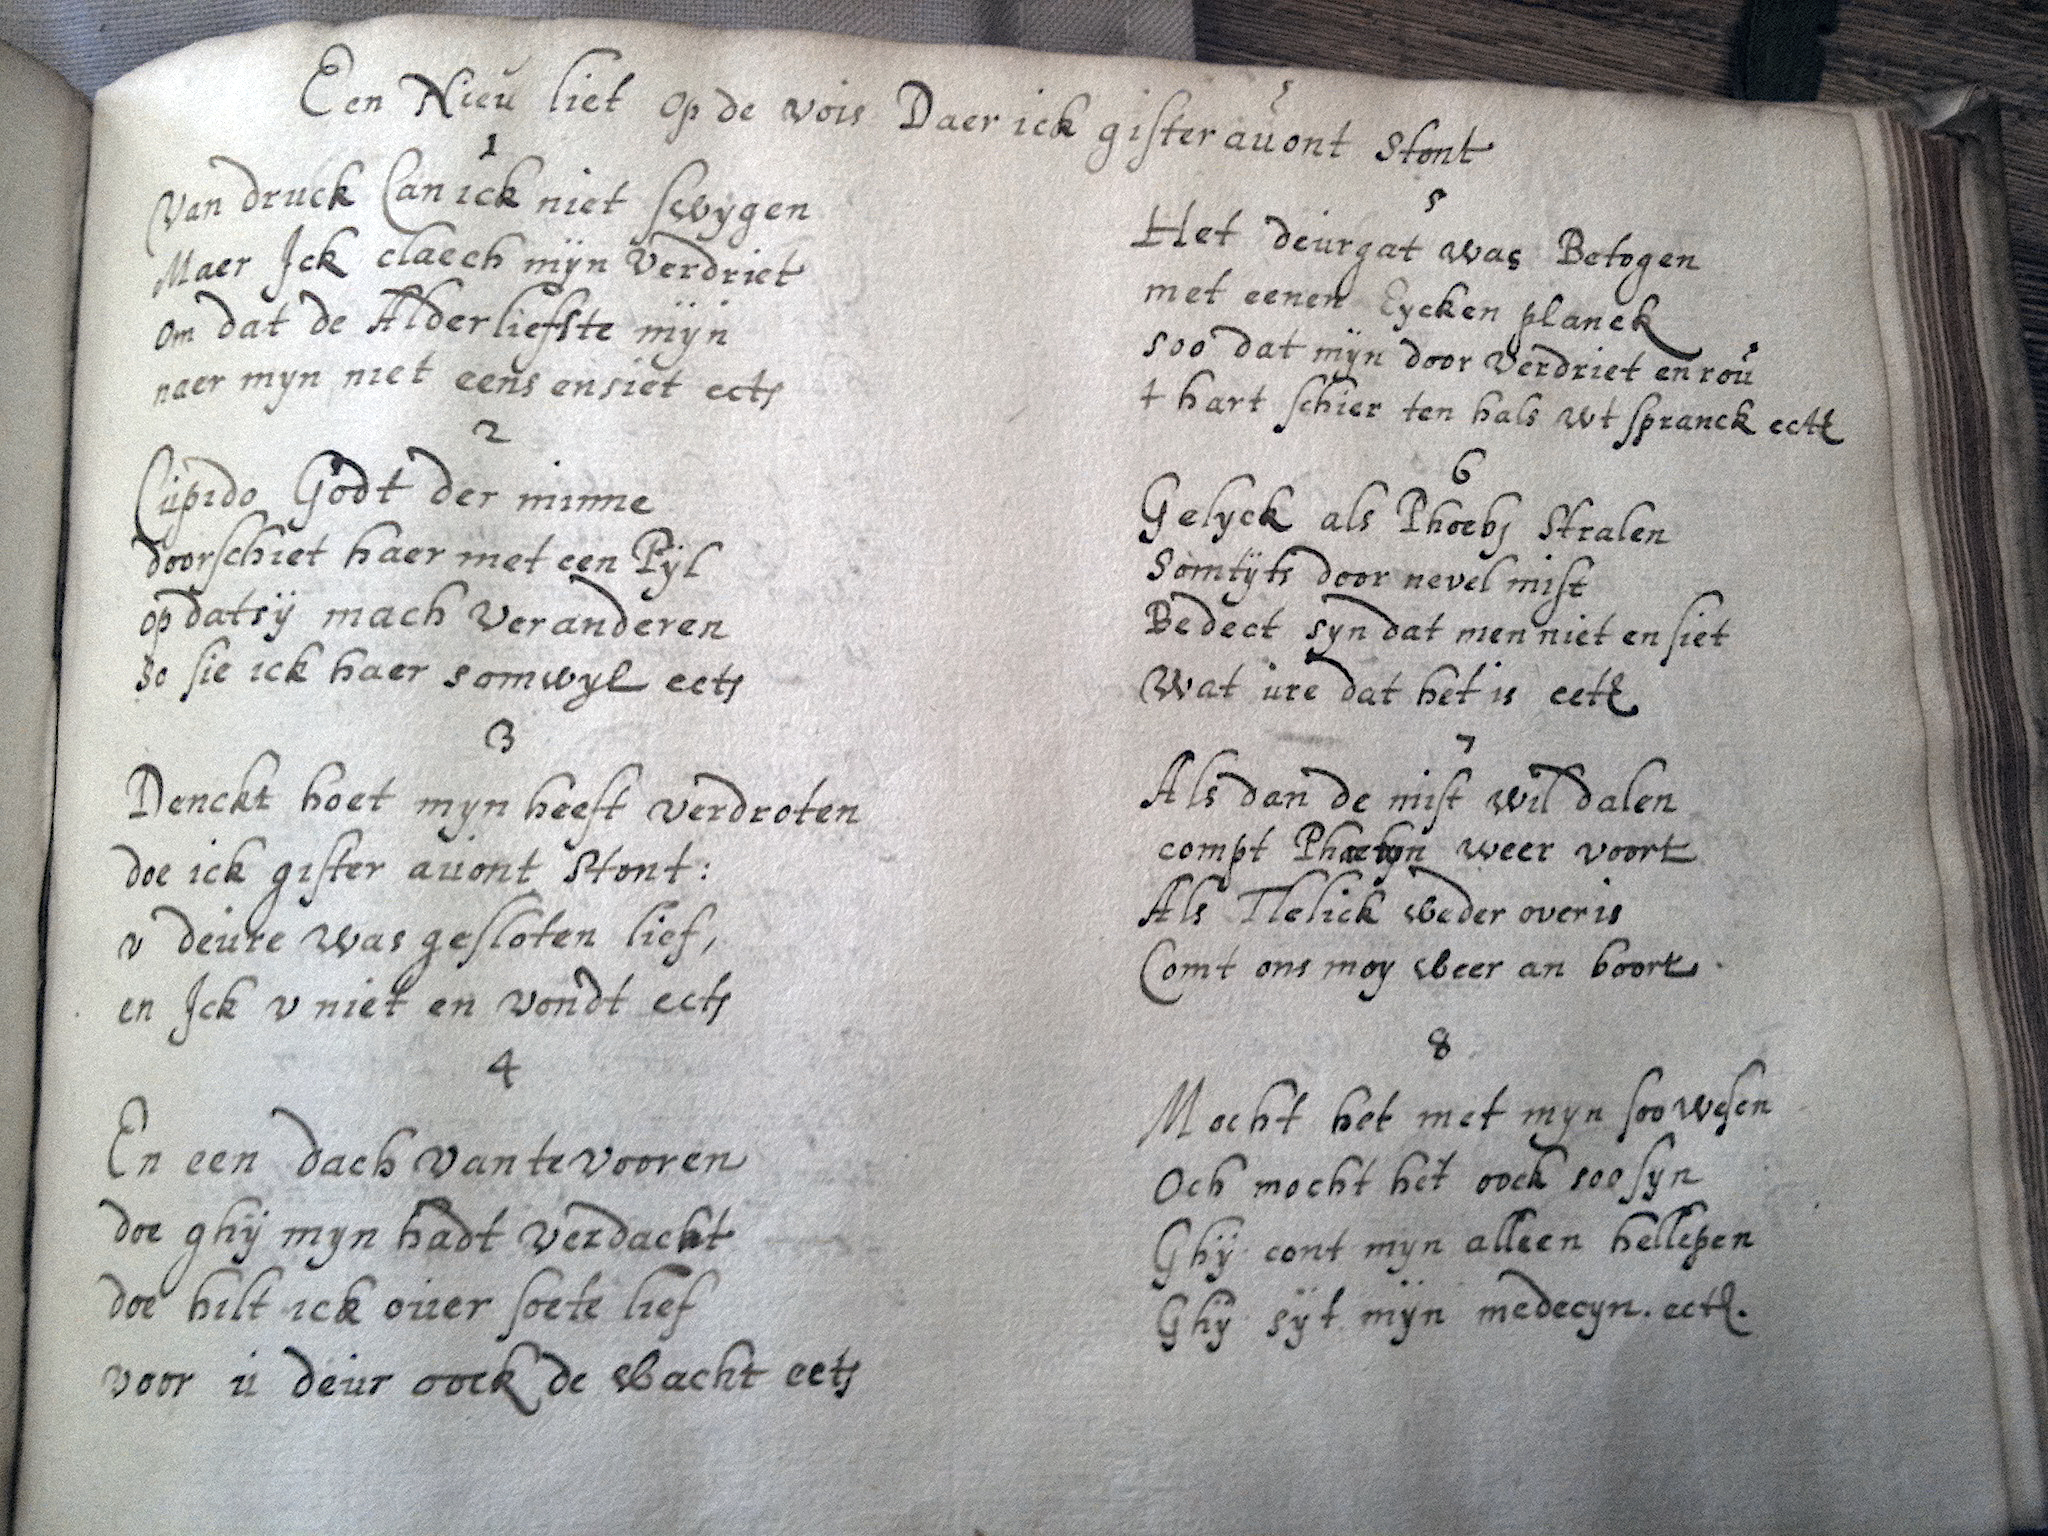 Een Nieu liet op de vois Daer ick gister auont stont
1
Van druck Can ick niet swygen
Maer Ick claech mijn verdriet
om dat de Alderliefste mijn
naer myn niet eens ensiet ects
2
Cupido Godt der minne
doorschiet haer met een Pijl
op datsij mach veranderen
so sie ick haer somwyl ects
3
Denckt hoet myn heeft verdroten
doe ick gister auont stont:
v deure was gesloten lief,
en Ick v niet en vondt ects
4
En een dach van te vooren
doe ghij myn hadt verdacht
doe hilt ick ouer soete lief
voor u deur oock de wacht eets
5
Het deurgat was Betogen
met eenen Eycken planck
soo dat mijn door verdriet en rou
t hart schier ten hals wt spranck ects
6
Gelyck als Phoebs stralen
Somtijts door nevel mist
Bedect syn dat men niet en siet
Wat ure dat het is eets
7
Als dan de mist wil dalen
compt weer voort
Als weder over is
Comt ons moy weer an boort.
8
Mocht het met myn soo wesen
Och mocht het oock soo syn
Ghij cont myn alleen hellepen
Ghij sijt mijn medecyn. ects.